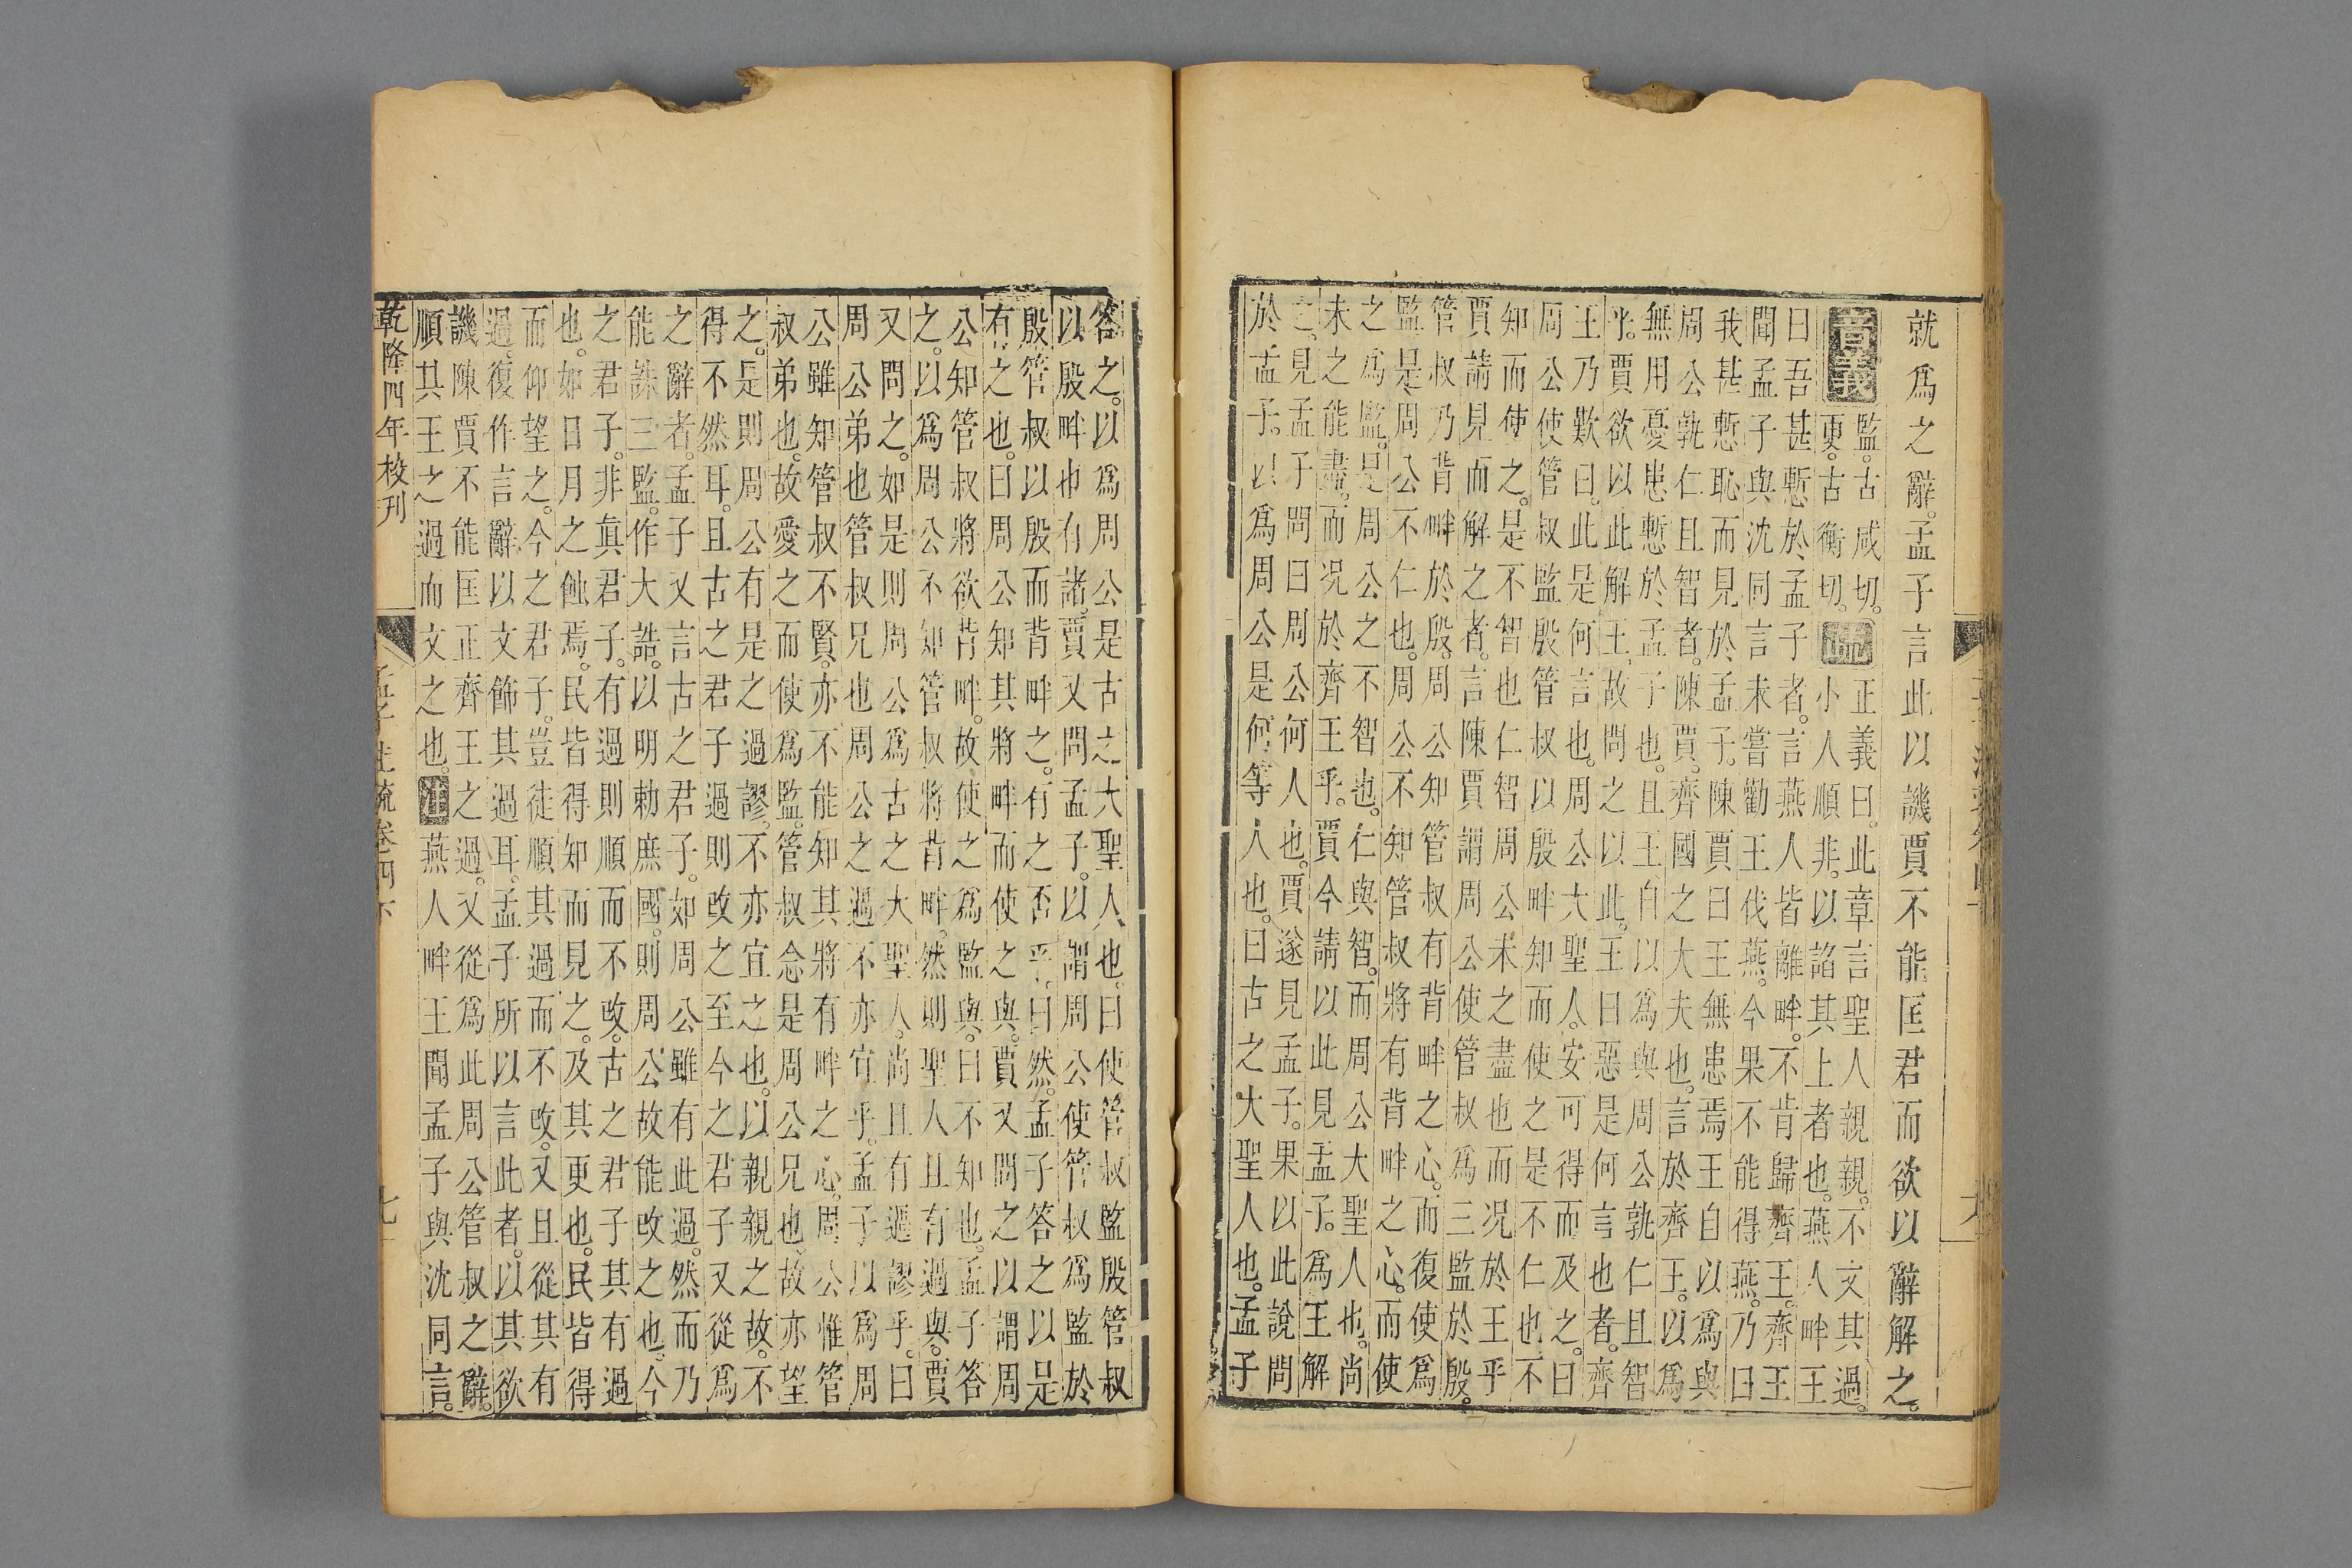 就爲之辭。孟子言此以譏賈不能匡君而欲以辭解之。
音義
監。古咸切。
更。古衡切。
疏
正義曰。此章言聖人親親。不文其過。
小人順非。以諂其上者也。燕人畔王
曰吾甚慙於孟子者。言燕人皆離畔。不肯歸齊王。齊王
聞孟子與沈同言未嘗勸王伐燕。今果不能得燕。乃曰
我甚慙恥而見於孟子。陳賈曰王無患焉王自以爲與
周公孰仁且智者。陳賈。齊國之大夫也。言於齊王。以爲
無用憂患慙於孟子也。且王自以爲與周公孰仁且智
乎。賈欲以此解王。故問之以此。王曰惡是何言也者。齊
王乃歎曰。此是何言也。周公大聖人。安可得而及之。曰
周公使管叔監殷管叔以殷畔知而使之是不仁也不
知而使之。是不智也仁智周公未之盡也而況於王乎
賈請見而解之者。言陳賈謂周公使管叔爲三監於殷。
管叔乃背畔於殷。周公知管叔有背畔之心。而復使爲
監是周公不仁也。周公不知管叔將有背畔之心。而使
之爲監。是周公之不智也。仁與智。而周公大聖人也。尚
未之能盡。而況於齊王乎。賈今請以此見孟子。爲王解
之。見孟子問曰周公何人也。賈遂見孟子。果以此說問
於孟子。以爲周公是何等人也。曰古之大聖人也。孟子
答之。以爲周公是古之大聖人也。曰使管叔監殷管叔
以殷畔也有諸。賈又問孟子。以謂周公使管叔爲監於
殷管叔以殷而背畔之。有之否乎。曰然。孟子答之以是
有之也。曰周公知其將畔而使之與。賈又問之以謂周
公知管叔將欲背畔。故使之爲監與。曰不知也。孟子答
之。以爲周公不知管叔將背畔。然則聖人且有過與。賈
又問之。如是則周公爲古之大聖人。尚且有過謬乎。曰
周公弟也管叔兄也周公之過不亦宜乎。孟子以爲周
公雖知管叔不賢。亦不能知其將有畔之心。周公惟管
叔弟也。故愛之而使爲監。管叔念是周公兄也。故亦望
之。是則周公有是之過謬。不亦宜之也。以親親之故。不
得不然耳。且古之君子過則改之至今之君子又從爲
之辭者。孟子又言古之君子。如周公雖有此過。然而乃
能誅三監。作大誥。以明勅庶國。則周公故能改之也。今
之君子。非眞君子。有過則順而不改。古之君子其有過
也。如日月之蝕焉。民皆得知而見之。及其更也。民皆得
而仰望之。今之君子。豈徒順其過而不改。又且從其有
過。復作言辭。以文飾其過耳。孟子所以言此者。以其欲
譏陳賈不能匡正齊王之過。又從爲此周公管叔之辭。
順其王之過而文之也。注燕人畔王聞孟子與沈同言。
乾隆四年校刊
孟子注疏卷四下